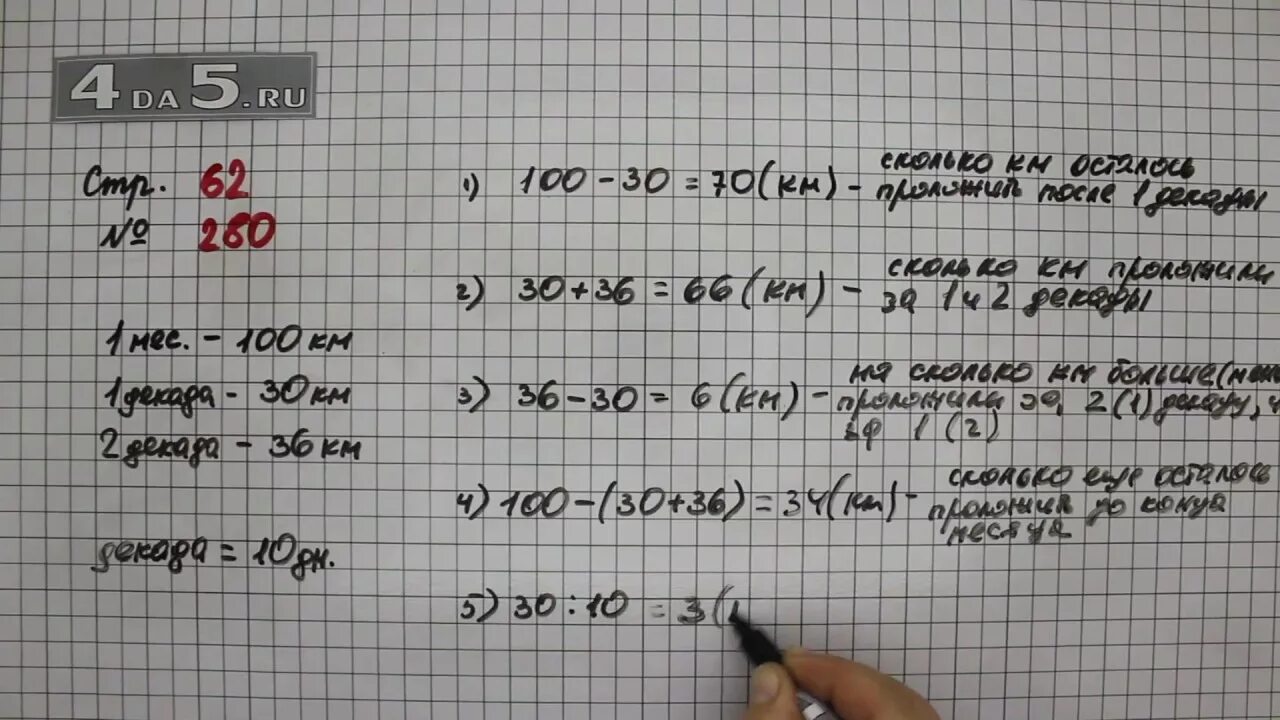 4DA5.RU
Стр. 62
№ 260
1 мес. – 100 км
1 декада – 30 км
2 декада – 36 км
декада = 10 дн.
1) 100 – 30 = 70 (км) – сколько км осталось
проложить после 1 декады
2) 30 + 36 = 66 (км) – сколько км проложили
за 1 и 2 декады
3) 36 – 30 = 6 (км) – на сколько км больше (мень
проложили за 2 (1) декаду, ч
за 1 (2)
4) 100 – (30 + 36) = 34 (км) – сколько еще осталось
проложить до конца
месяца
5) 30 : 10 = 3 (